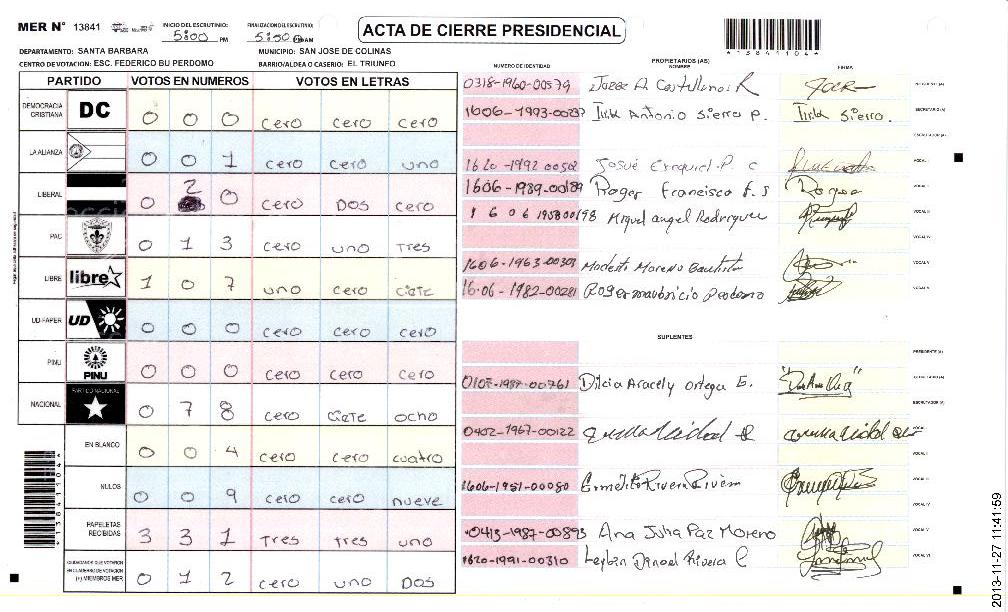 MER N° 13841
INICIO DEL ESCRUTINIO: 5:00 PM
FINALIZACION DEL ESCRUTINIO: 5:50 PM AM
ACTA DE CIERRE PRESIDENCIAL
*13841104*
DEPARTAMENTO: SANTA BARBARA
MUNICIPIO: SAN JOSE DE COLINAS
CENTRO DE VOTACION: ESC. FEDERICO BU PERDOMO
BARRIO/ALDEA O CASERIO: EL TRIUNFO
PARTIDO VOTOS EN NUMEROS VOTOS EN LETRAS
DEMOCRACIA CRISTIANA DC 0 0 0 cero cero cero
LA ALIANZA 0 0 1 cero cero uno
LIBERAL 0 2 0 cero DOS cero
PAC 0 1 3 cero uno Tres
LIBRE libre 1 0 7 uno cero ciete
UD-FAPER UD 0 0 0 cero cero cero
PINU PINU 0 0 0 cero cero cero
NACIONAL PARTIDO NACIONAL 0 7 8 cero ciete ocho
EN BLANCO 0 0 4 cero cero cuatro
NULOS 0 0 9 cero cero nueve
PAPELETAS RECIBIDAS 3 3 1 Tres tres uno
CIUDADANOS QUE VOTARON EN CUADERNO DE VOTACION (+) MIEMBROS MER 0 1 2 cero uno DOS
NUMERO DE IDENTIDAD PROPIETARIOS (AS) NOMBRE FIRMA
0318-1960-00579 Jorge A Castellanos R PRESIDENTE (A)
1606-1993-00237 Antonio Sierra P. Sierra. SECRETARIO (A)
ESCRUTADOR (A)
1620-1992 00502 Josué Exequiel P. C VOCAL I
1606-1989-00189 Roger Francisco F. S Roger VOCAL II
1606 1958 00198 Miguel angel Rodriguez VOCAL III
VOCAL IV
1606-1963-00303 Modesto Moreno Bautista VOCAL V
16.06-1982-00281 Roger mauricio Perdomo
SUPLENTES
PRESIDENTE (A)
-1988-00761 Dilcia Aracely ortega E. SECRETARIO (A)
ESCRUTADOR (A)
0402-1967-00122 VOCAL I
VOCAL II
1606-1951-00080 Ermelito Rivera Rivera VOCAL III
VOCAL IV
0413-1987-00893 Ana Julia Paz Moreno VOCAL V
1620-1991-00310 Leybin Danael Rivera C VOCAL VI
2013-11-27 11:41:59